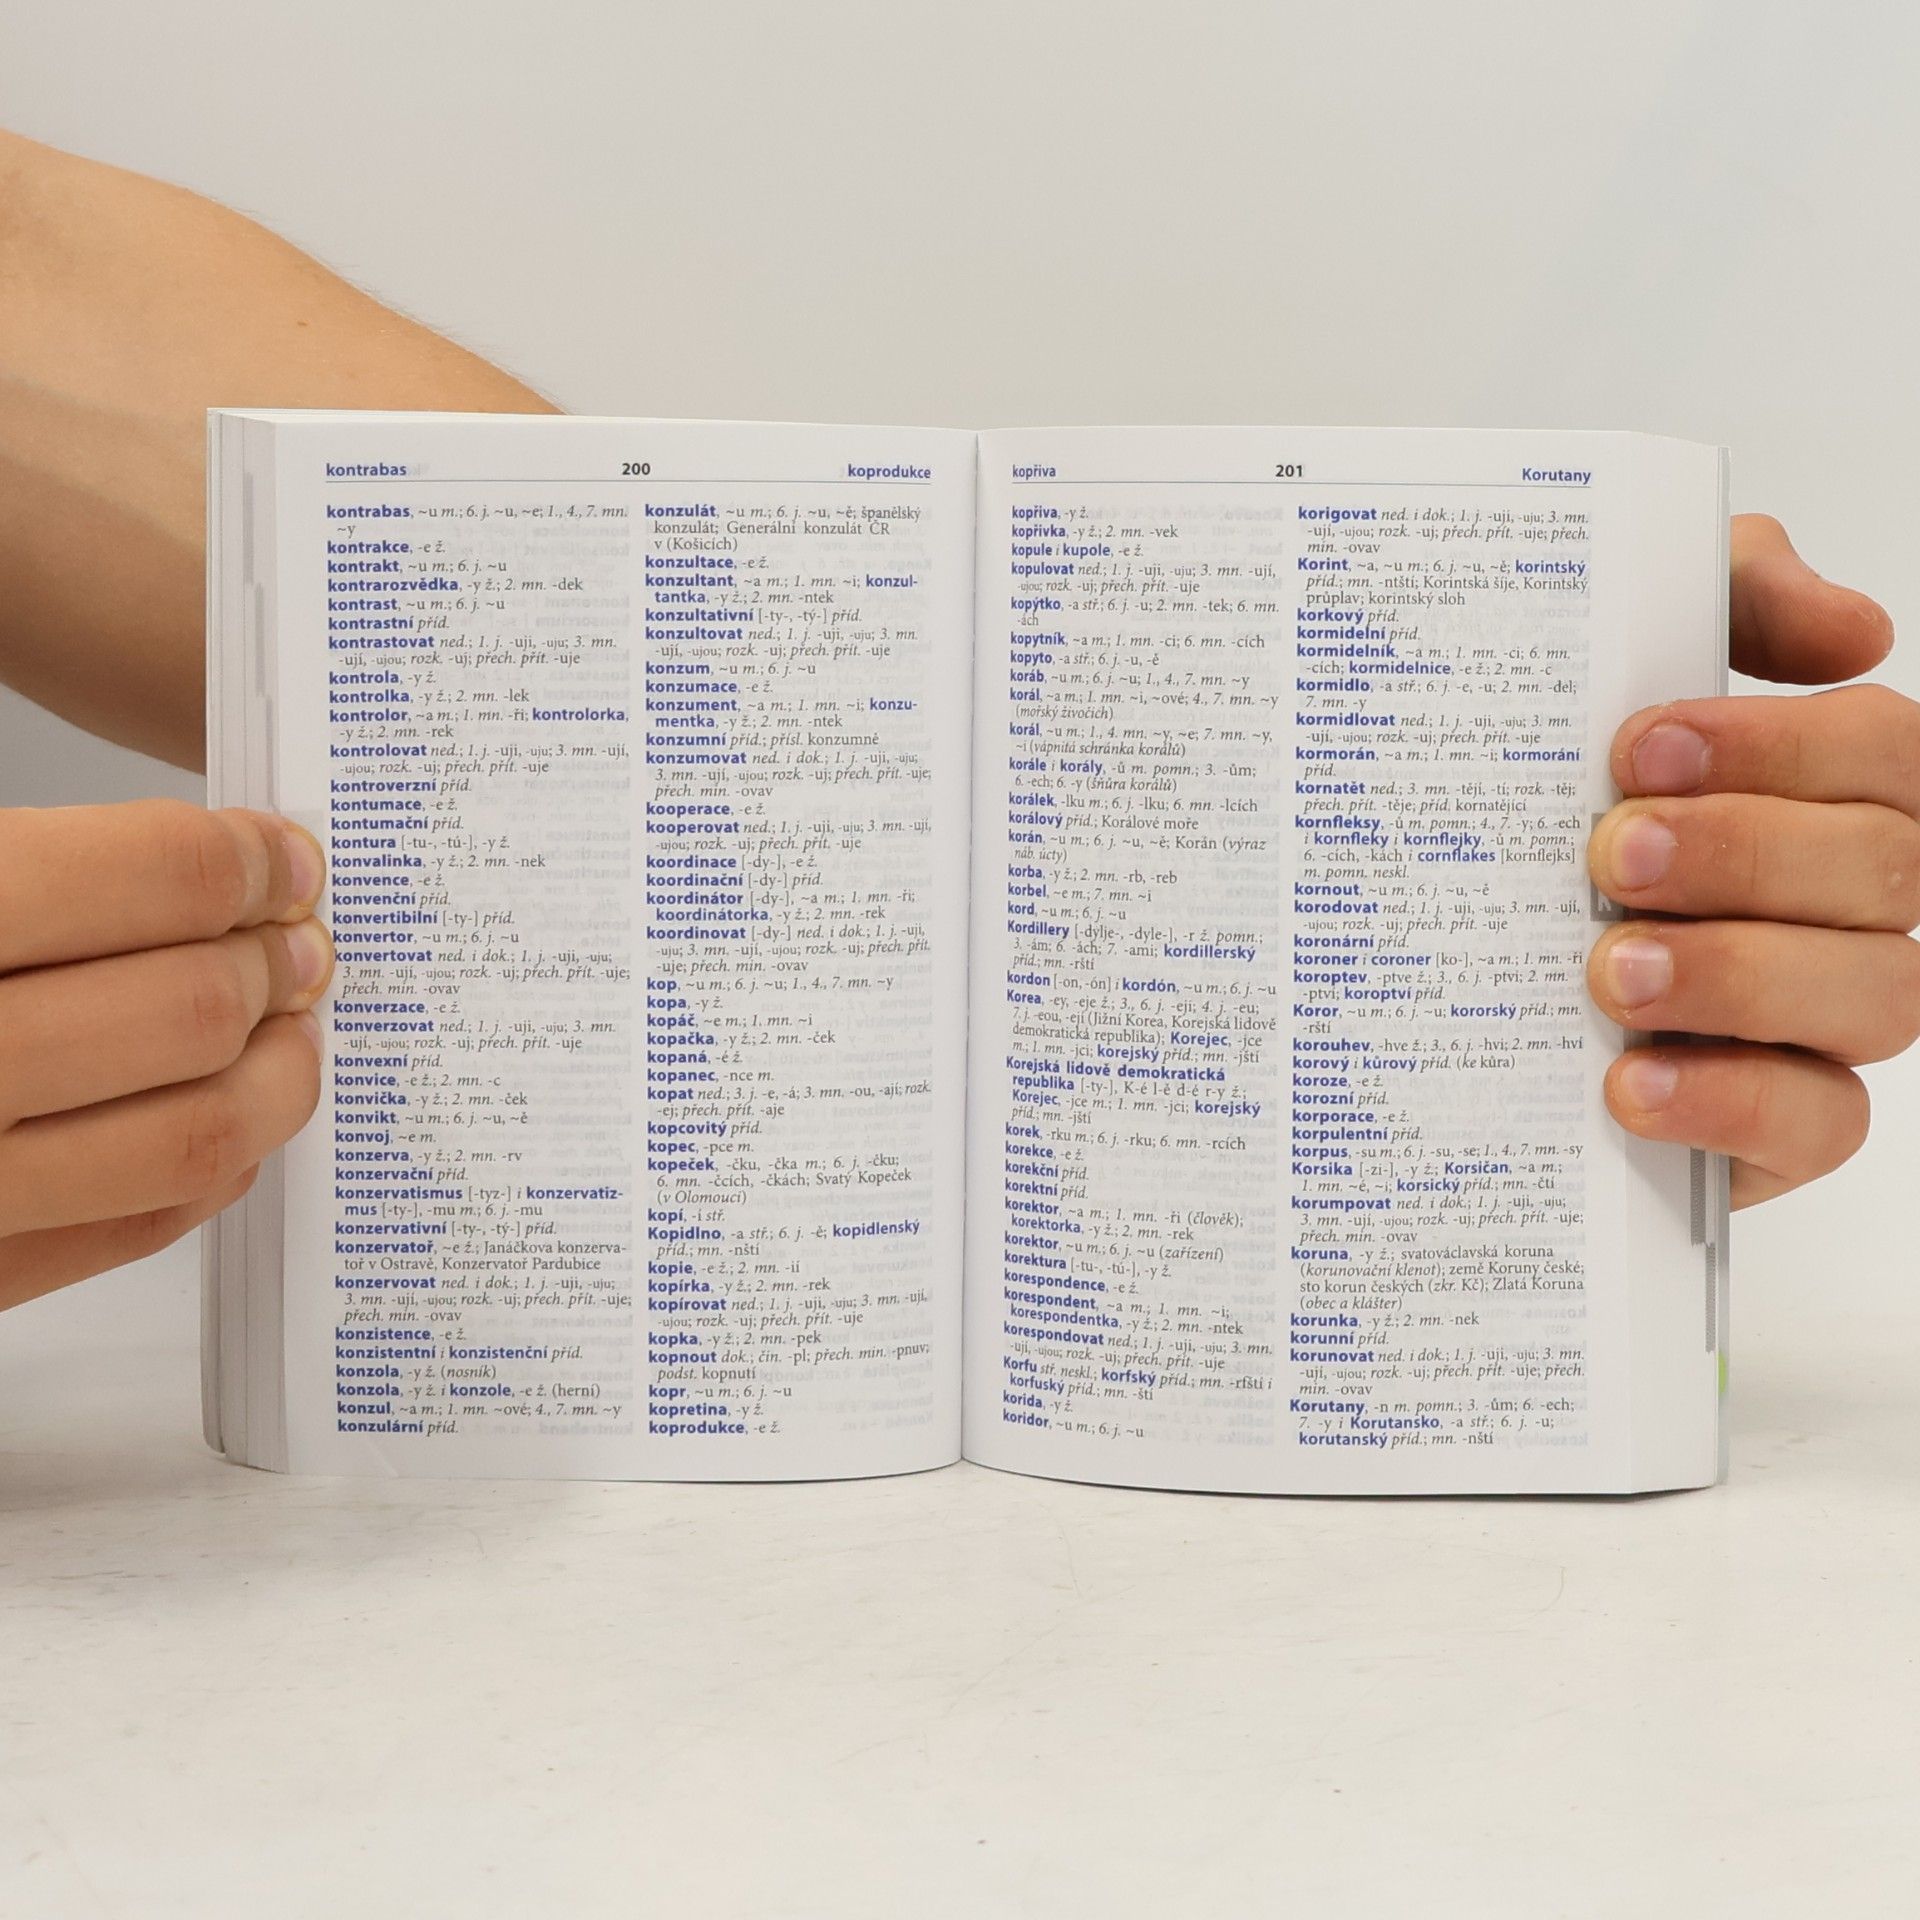 kontrabas 200 koprodukce
kontrabas, ~u m.; 6. j. ~u, ~e; 1., 4., 7. mn.
~y
kontrakce, -e ž.
kontrakt, ~u m.; 6. j. ~u
kontrarozvědka, -y ž.; 2. mn. -dek
kontrast, ~u m.; 6. j. ~u
kontrastní příd.
kontrastovat ned.; 1. j. -uji, -uju; 3. mn.
-ují, -ujou; rozk. -uj; přech. přít. -uje
kontrola, -y ž.
kontrolka, -y ž.; 2. mn. -lek
kontrolor, ~a m.; 1. mn. -ři; kontrolorka,
-y ž.; 2. mn. -rek
kontrolovat ned.; 1. j. -uji, -uju; 3. mn. -ují,
-ujou; rozk. -uj; přech. přít. -uje
kontroverzní příd.
kontumace, -e ž.
kontumační příd.
kontura [-tu-, -tú-], -y ž.
konvalinka, -y ž.; 2. mn. -nek
konvence, -e ž.
konvenční příd.
konvertibilní [-ty-] příd.
konvertor, ~u m.; 6. j. ~u
konvertovat ned. i dok.; 1. j. -uji, -uju;
3. mn. -ují, -ujou; rozk. -uj; přech. přít. -uje;
přech. min. -ovav
konverzace, -e ž.
konverzovat ned.; 1. j. -uji, -uju; 3. mn.
-ují, -ujou; rozk. -uj; přech. přít. -uje
konvexní příd.
konvice, -e ž.; 2. mn. -c
konvička, -y ž.; 2. mn. -ček
konvikt, ~u m.; 6. j. ~u, ~ě
konvoj, ~e m.
konzerva, -y ž.; 2. mn. -rv
konzervační příd.
konzervatismus [-tyz-] i konzervatiz-
mus [-ty-], -mu m.; 6. j. -mu
konzervativní [-ty-, -tý-] příd.
konzervatoř, ~e ž.; Janáčkova konzerva-
toř v Ostravě, Konzervatoř Pardubice
konzervovat ned. i dok.; 1. j. -uji, -uju;
3. mn. -ují, -ujou; rozk. -uj; přech. přít. -uje;
přech. min. -ovav
konzistence, -e ž.
konzistentní i konzistenční příd.
konzola, -y ž. (nosník)
konzola, -y ž. i konzole, -e ž. (herní)
konzul, ~a m.; 1. mn. ~ové; 4., 7. mn. ~y
konzulární příd.
konzulát, ~u m.; 6. j. ~u, ~ě; španělský
konzulát; Generální konzulát ČR
v (Košicích)
konzultace, -e ž.
konzultant, ~a m.; 1. mn. ~i; konzul-
tantka, -y ž.; 2. mn. -ntek
konzultativní [-ty-, -tý-] příd.
konzultovat ned.; 1. j. -uji, -uju; 3. mn.
-ují, -ujou; rozk. -uj; přech. přít. -uje
konzum, ~u m.; 6. j. ~u
konzumace, -e ž.
konzument, ~a m.; 1. mn. ~i; konzu-
mentka, -y ž.; 2. mn. -ntek
konzumní příd.; přísl. konzumně
konzumovat ned. i dok.; 1. j. -uji, -uju;
3. mn. -ují, -ujou; rozk. -uj; přech. přít. -uje;
přech. min. -ovav
kooperace, -e ž.
kooperovat ned.; 1. j. -uji, -uju; 3. mn. -ují,
-ujou; rozk. -uj; přech. přít. -uje
koordinace [-dy-], -e ž.
koordinační [-dy-] příd.
koordinátor [-dy-], ~a m.; 1. mn. -ři;
koordinátorka, -y ž.; 2. mn. -rek
koordinovat [-dy-] ned. i dok.; 1. j. -uji,
-uju; 3. mn. -ují, -ujou; rozk. -uj; přech. přít.
-uje; přech. min. -ovav
kop, ~u m.; 6. j. ~u; 1., 4., 7. mn. ~y
kopa, -y ž.
kopáč, ~e m.; 1. mn. ~i
kopačka, -y ž.; 2. mn. -ček
kopaná, -é ž.
kopanec, -nce m.
kopat ned.; 3. j. -e, -á; 3. mn. -ou, -ají; rozk.
-ej; přech. přít. -aje
kopcovitý příd.
kopec, -pce m.
kopeček, -čku, -čka m.; 6. j. -čku;
6. mn. -čcích, -čkách; Svatý Kopeček
(v Olomouci)
kopí, -í stř.
Kopidlno, -a stř.; 6. j. -ě; kopidlenský
příd.; mn. -nští
kopie, -e ž.; 2. mn. -ií
kopírka, -y ž.; 2. mn. -rek
kopírovat ned.; 1. j. -uji, -uju; 3. mn. -ují,
-ujou; rozk. -uj; přech. přít. -uje
kopka, -y ž.; 2. mn. -pek
kopnout dok.; čin. -pl; přech. min. -pnuv;
podst. kopnutí
kopr, ~u m.; 6. j. ~u
kopretina, -y ž.
koprodukce, -e ž.
kopřiva 201 Korutany
kopřiva, -y ž.
kopřivka, -y ž.; 2. mn. -vek
kopule i kupole, -e ž.
kopulovat ned.; 1. j. -uji, -uju; 3. mn. -ují,
-ujou; rozk. -uj; přech. přít. -uje
kopýtko, -a stř.; 6. j. -u; 2. mn. -tek; 6. mn.
-ách
kopytník, ~a m.; 1. mn. -ci; 6. mn. -cích
kopyto, -a stř.; 6. j. -u, -ě
koráb, ~u m.; 6. j. ~u; 1., 4., 7. mn. ~y
korál, ~a m.; 1. mn. ~i, ~ové; 4., 7. mn. ~y
(mořský živočich)
korál, ~u m.; 1., 4. mn. ~y, ~e; 7. mn. ~y,
~i (vápnitá schránka korálů)
korále i korály, -ů m. pomn.; 3. -ům;
6. -ech; 6. -y (šňůra korálů)
korálek, -lku m.; 6. j. -lku; 6. mn. -lcích
korálový příd.; Korálové moře
korán, ~u m.; 6. j. ~u, ~ě; Korán (výraz
náb. úcty)
korba, -y ž.; 2. mn. -rb, -reb
korbel, ~e m.; 7. mn. ~i
kord, ~u m.; 6. j. ~u
Kordillery [-dylje-, -dyle-], -r ž. pomn.;
3. -ám; 6. -ách; 7. -ami; kordillerský
příd.; mn. -rští
kordon [-on, -ón] i kordón, ~u m.; 6. j. ~u
Korea, -ey, -eje ž.; 3., 6. j. -eji; 4. j. -eu;
7. j. -eou, -ejí (Jižní Korea, Korejská lidově
demokratická republika); Korejec, -jce
m.; 1. mn. -jci; korejský příd.; mn. -jští
Korejská lidově demokratická
republika [-ty-], K-é l-ě d-é r-y ž.;
Korejec, -jce m.; 1. mn. -jci; korejský
příd.; mn. -jští
korek, -rku m.; 6. j. -rku; 6. mn. -rcích
korekce, -e ž.
korekční příd.
korektní příd.
korektor, ~a m.; 1. mn. -ři (člověk);
korektorka, -y ž.; 2. mn. -rek
korektor, ~u m.; 6. j. ~u (zařízení)
korektura [-tu-, -tú-], -y ž.
korespondence, -e ž.
korespondent, ~a m.; 1. mn. ~i;
korespondentka, -y ž.; 2. mn. -ntek
korespondovat ned.; 1. j. -uji, -uju; 3. mn.
-ují, -ujou; rozk. -uj; přech. přít. -uje
Korfu stř. neskl.; korfský příd.; mn. -rfští i
korfuský příd.; mn. -ští
korida, -y ž.
koridor, ~u m.; 6. j. ~u
korigovat ned. i dok.; 1. j. -uji, -uju; 3. mn.
-ují, -ujou; rozk. -uj; přech. přít. -uje; přech.
min. -ovav
Korint, ~a, ~u m.; 6. j. ~u, ~ě; korintský
příd.; mn. -ntští; Korintská šíje, Korintský
průplav; korintský sloh
korkový příd.
kormidelní příd.
kormidelník, ~a m.; 1. mn. -ci; 6. mn.
-cích; kormidelnice, -e ž.; 2. mn. -c
kormidlo, -a stř.; 6. j. -e, -u; 2. mn. -del;
7. mn. -y
kormidlovat ned.; 1. j. -uji, -uju; 3. mn.
-ují, -ujou; rozk. -uj; přech. přít. -uje
kormorán, ~a m.; 1. mn. ~i; kormorání
příd.
kornatět ned.; 3. mn. -tějí, -tí; rozk. -těj;
přech. přít. -těje; příd. kornatějící
kornfleksy, -ů m. pomn.; 4., 7. -y; 6. -ech
i kornfleky i kornflejky, -ů m. pomn.;
6. -cích, -kách i cornflakes [kornflejks]
m. pomn. neskl.
kornout, ~u m.; 6. j. ~u, ~ě
korodovat ned.; 1. j. -uji, -uju; 3. mn. -ují,
-ujou; rozk. -uj; přech. přít. -uje
koronární příd.
koroner i coroner [ko-], ~a m.; 1. mn. -ři
koroptev, -ptve ž.; 3., 6. j. -ptvi; 2. mn.
-ptví; koroptví příd.
Koror, ~u m.; 6. j. ~u; kororský příd.; mn.
-rští
korouhev, -hve ž.; 3., 6. j. -hvi; 2. mn. -hví
korový i kůrový příd. (ke kůra)
koroze, -e ž.
korozní příd.
korporace, -e ž.
korpulentní příd.
korpus, -su m.; 6. j. -su, -se; 1., 4., 7. mn. -sy
Korsika [-zi-], -y ž.; Korsičan, ~a m.;
1. mn. ~é, ~i; korsický příd.; mn. -čtí
korumpovat ned. i dok.; 1. j. -uji, -uju;
3. mn. -ují, -ujou; rozk. -uj; přech. přít. -uje;
přech. min. -ovav
koruna, -y ž.; svatováclavská koruna
(korunovační klenot); země Koruny české;
sto korun českých (zkr. Kč); Zlatá Koruna
(obec a klášter)
korunka, -y ž.; 2. mn. -nek
korunní příd.
korunovat ned. i dok.; 1. j. -uji, -uju; 3. mn.
-ují, -ujou; rozk. -uj; přech. přít. -uje; přech.
min. -ovav
Korutany, -n m. pomn.; 3. -ům; 6. -ech;
7. -y i Korutansko, -a stř.; 6. j. -u;
korutanský příd.; mn. -nští